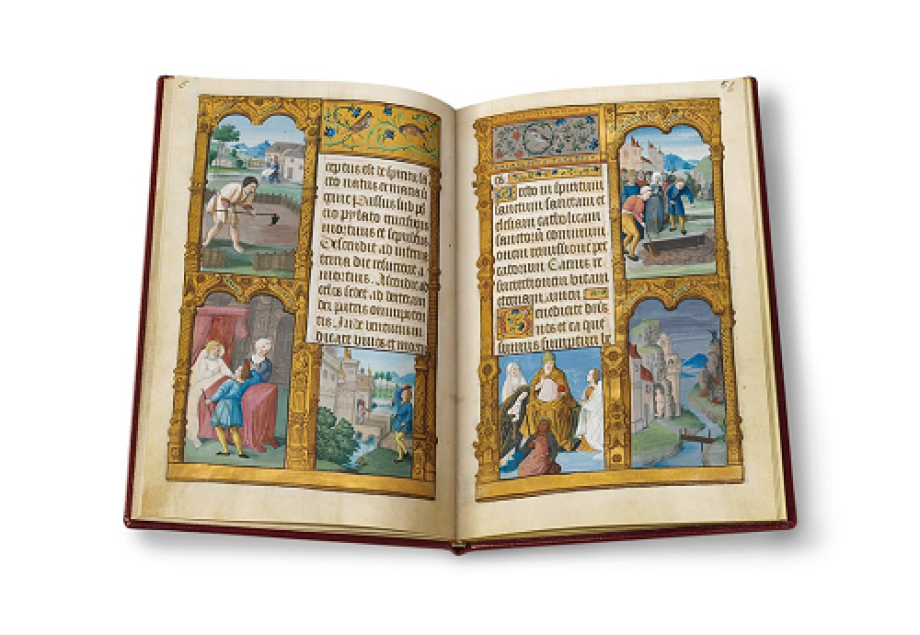 ceptus est de spiritu sa
cto natus ex maria ui
rgine Passus sub po
cio pylato crucifixus
mortuus et sepultus
Descendit ad inferna
tercia die resurrexit a
mortuis. Ascendit ad
celos sedet ad dexteram
dei patris omnipoten
tis. Inde venturus iu
dicare viuos et mortu
os
Credo in spiritum
sanctum sanctam ec
clesiam catholicam
sanctorũ communi
onem remissionem pec
catorum Carnis re
surrectionem vitam
eternam amen
Benedicite
nos et ea que
sumus sumpturi be